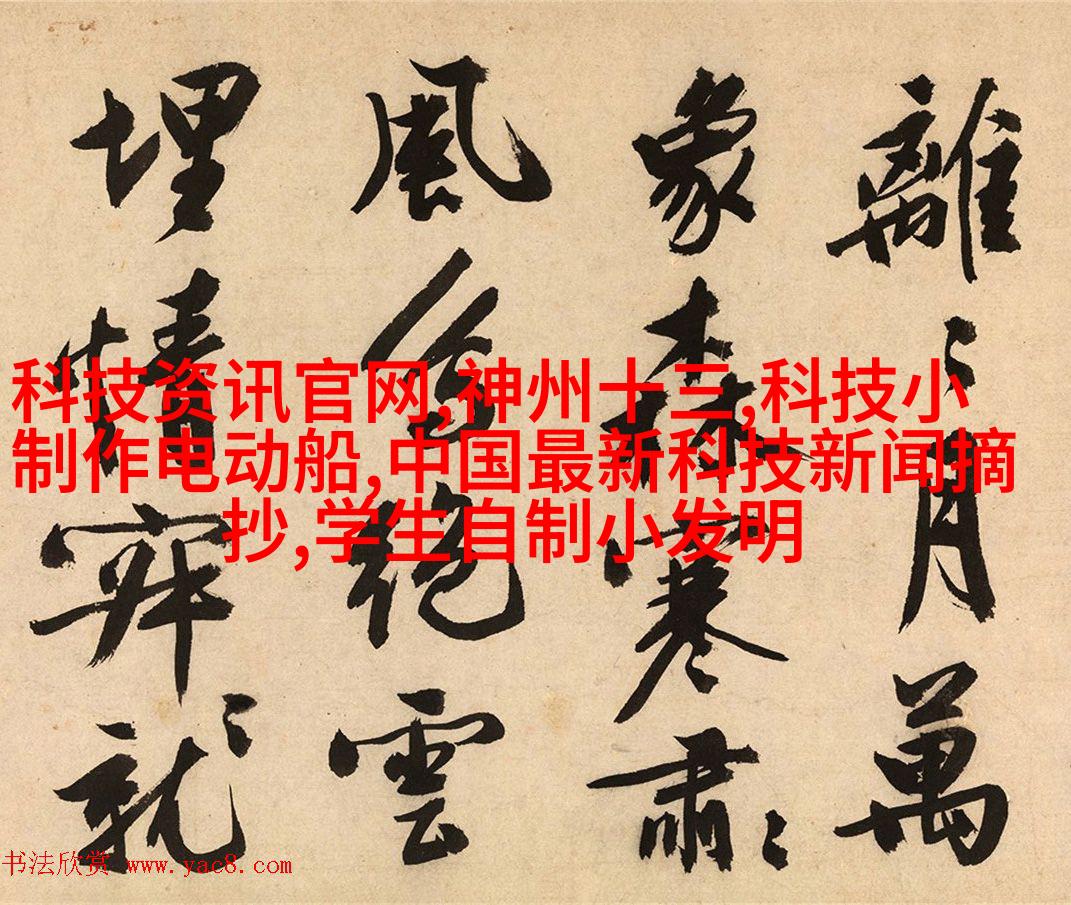 離〻月萬
象森寒肅〻
風絕雲
埋情〻就
科技资讯官网,神州十三,科技小
制作电动船,中国最新科技新闻摘
抄,学生自制小发明
书法欣赏 www.yac8.com